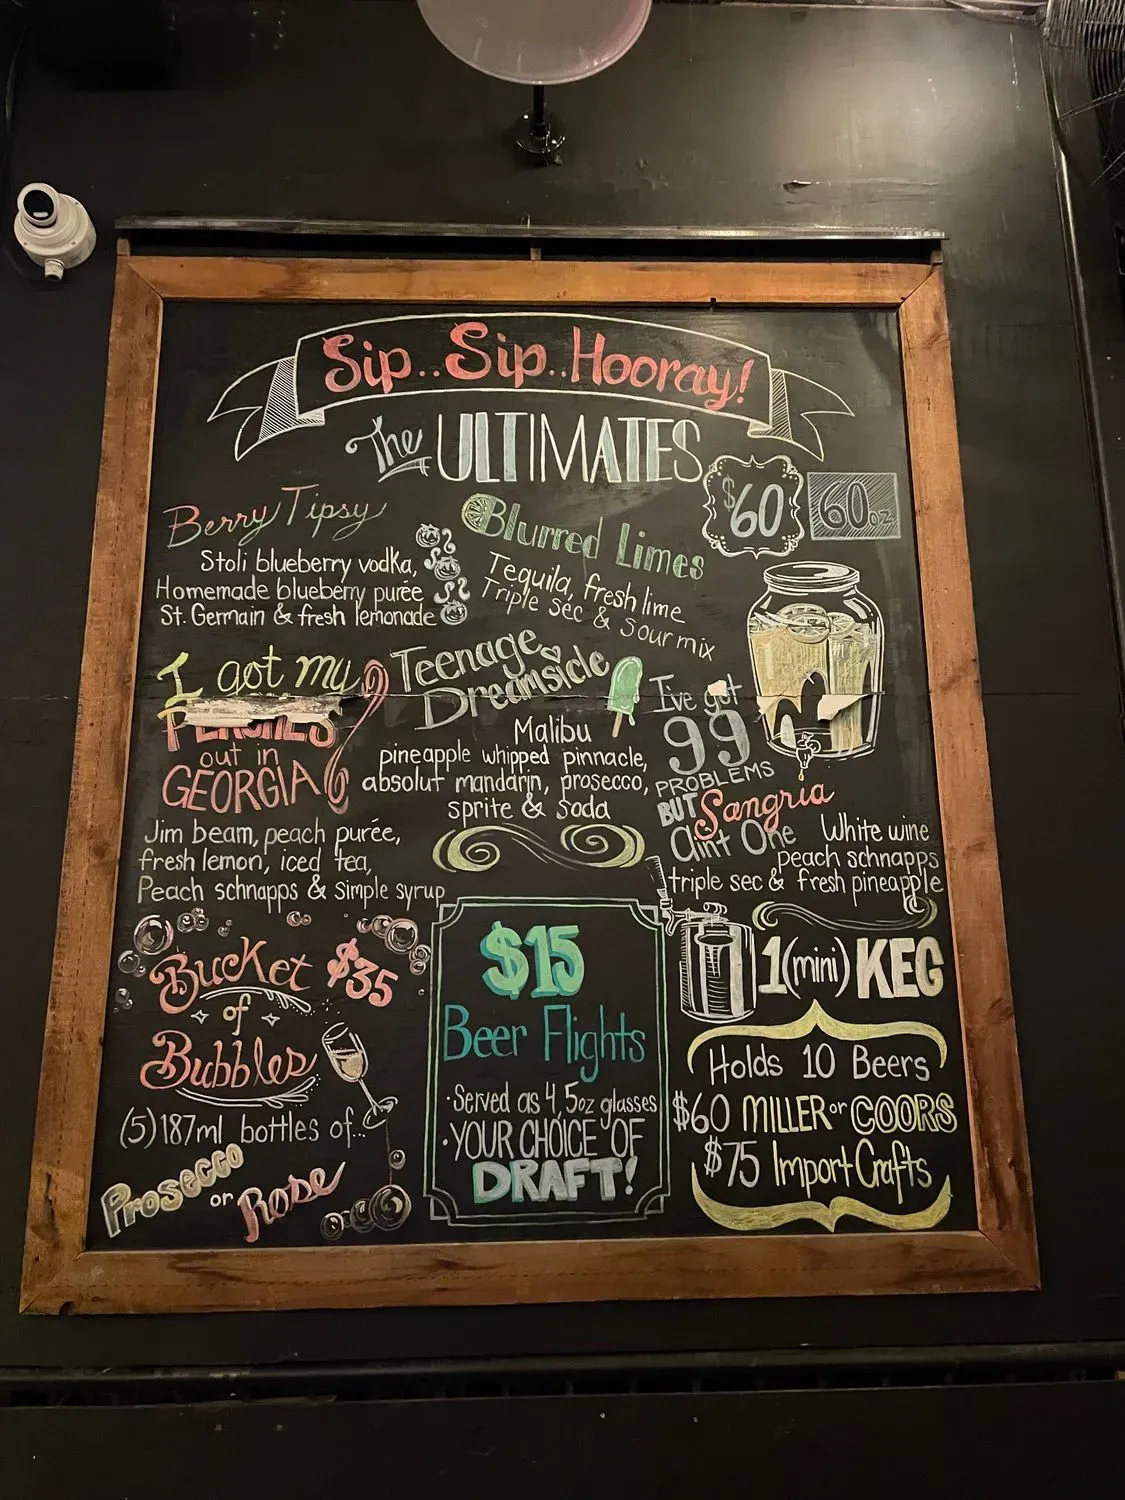 Sip..Sip..Hooray!
The ULTIMATES
$60
60oz
Berry Tipsy
Stoli blueberry vodka,
Homemade blueberry purée
St. Germain & fresh lemonade
Blurred Limes
Tequila, fresh lime
Triple sec & sour mix
I got my
PEACHES
out in
GEORGIA
Jim beam, peach purée,
fresh lemon, iced tea,
Peach schnapps & simple syrup
Teenage
Dreamsicle
Malibu
pineapple whipped pinnacle,
absolut mandarin, prosecco,
sprite & soda
I've got
99
PROBLEMS
BUT Sangria
aint One
White wine
Peach schnapps
triple sec & fresh pineapple
Bucket $35
of
Bubbles
(5) 187ml bottles of...
Prosecco
or Rose
$15
Beer Flights
·Served as 4, 5oz glasses
·YOUR CHOICE OF
DRAFT!
1 (mini) KEG
Holds 10 Beers
$60 MILLER or COORS
$75 Import Crafts